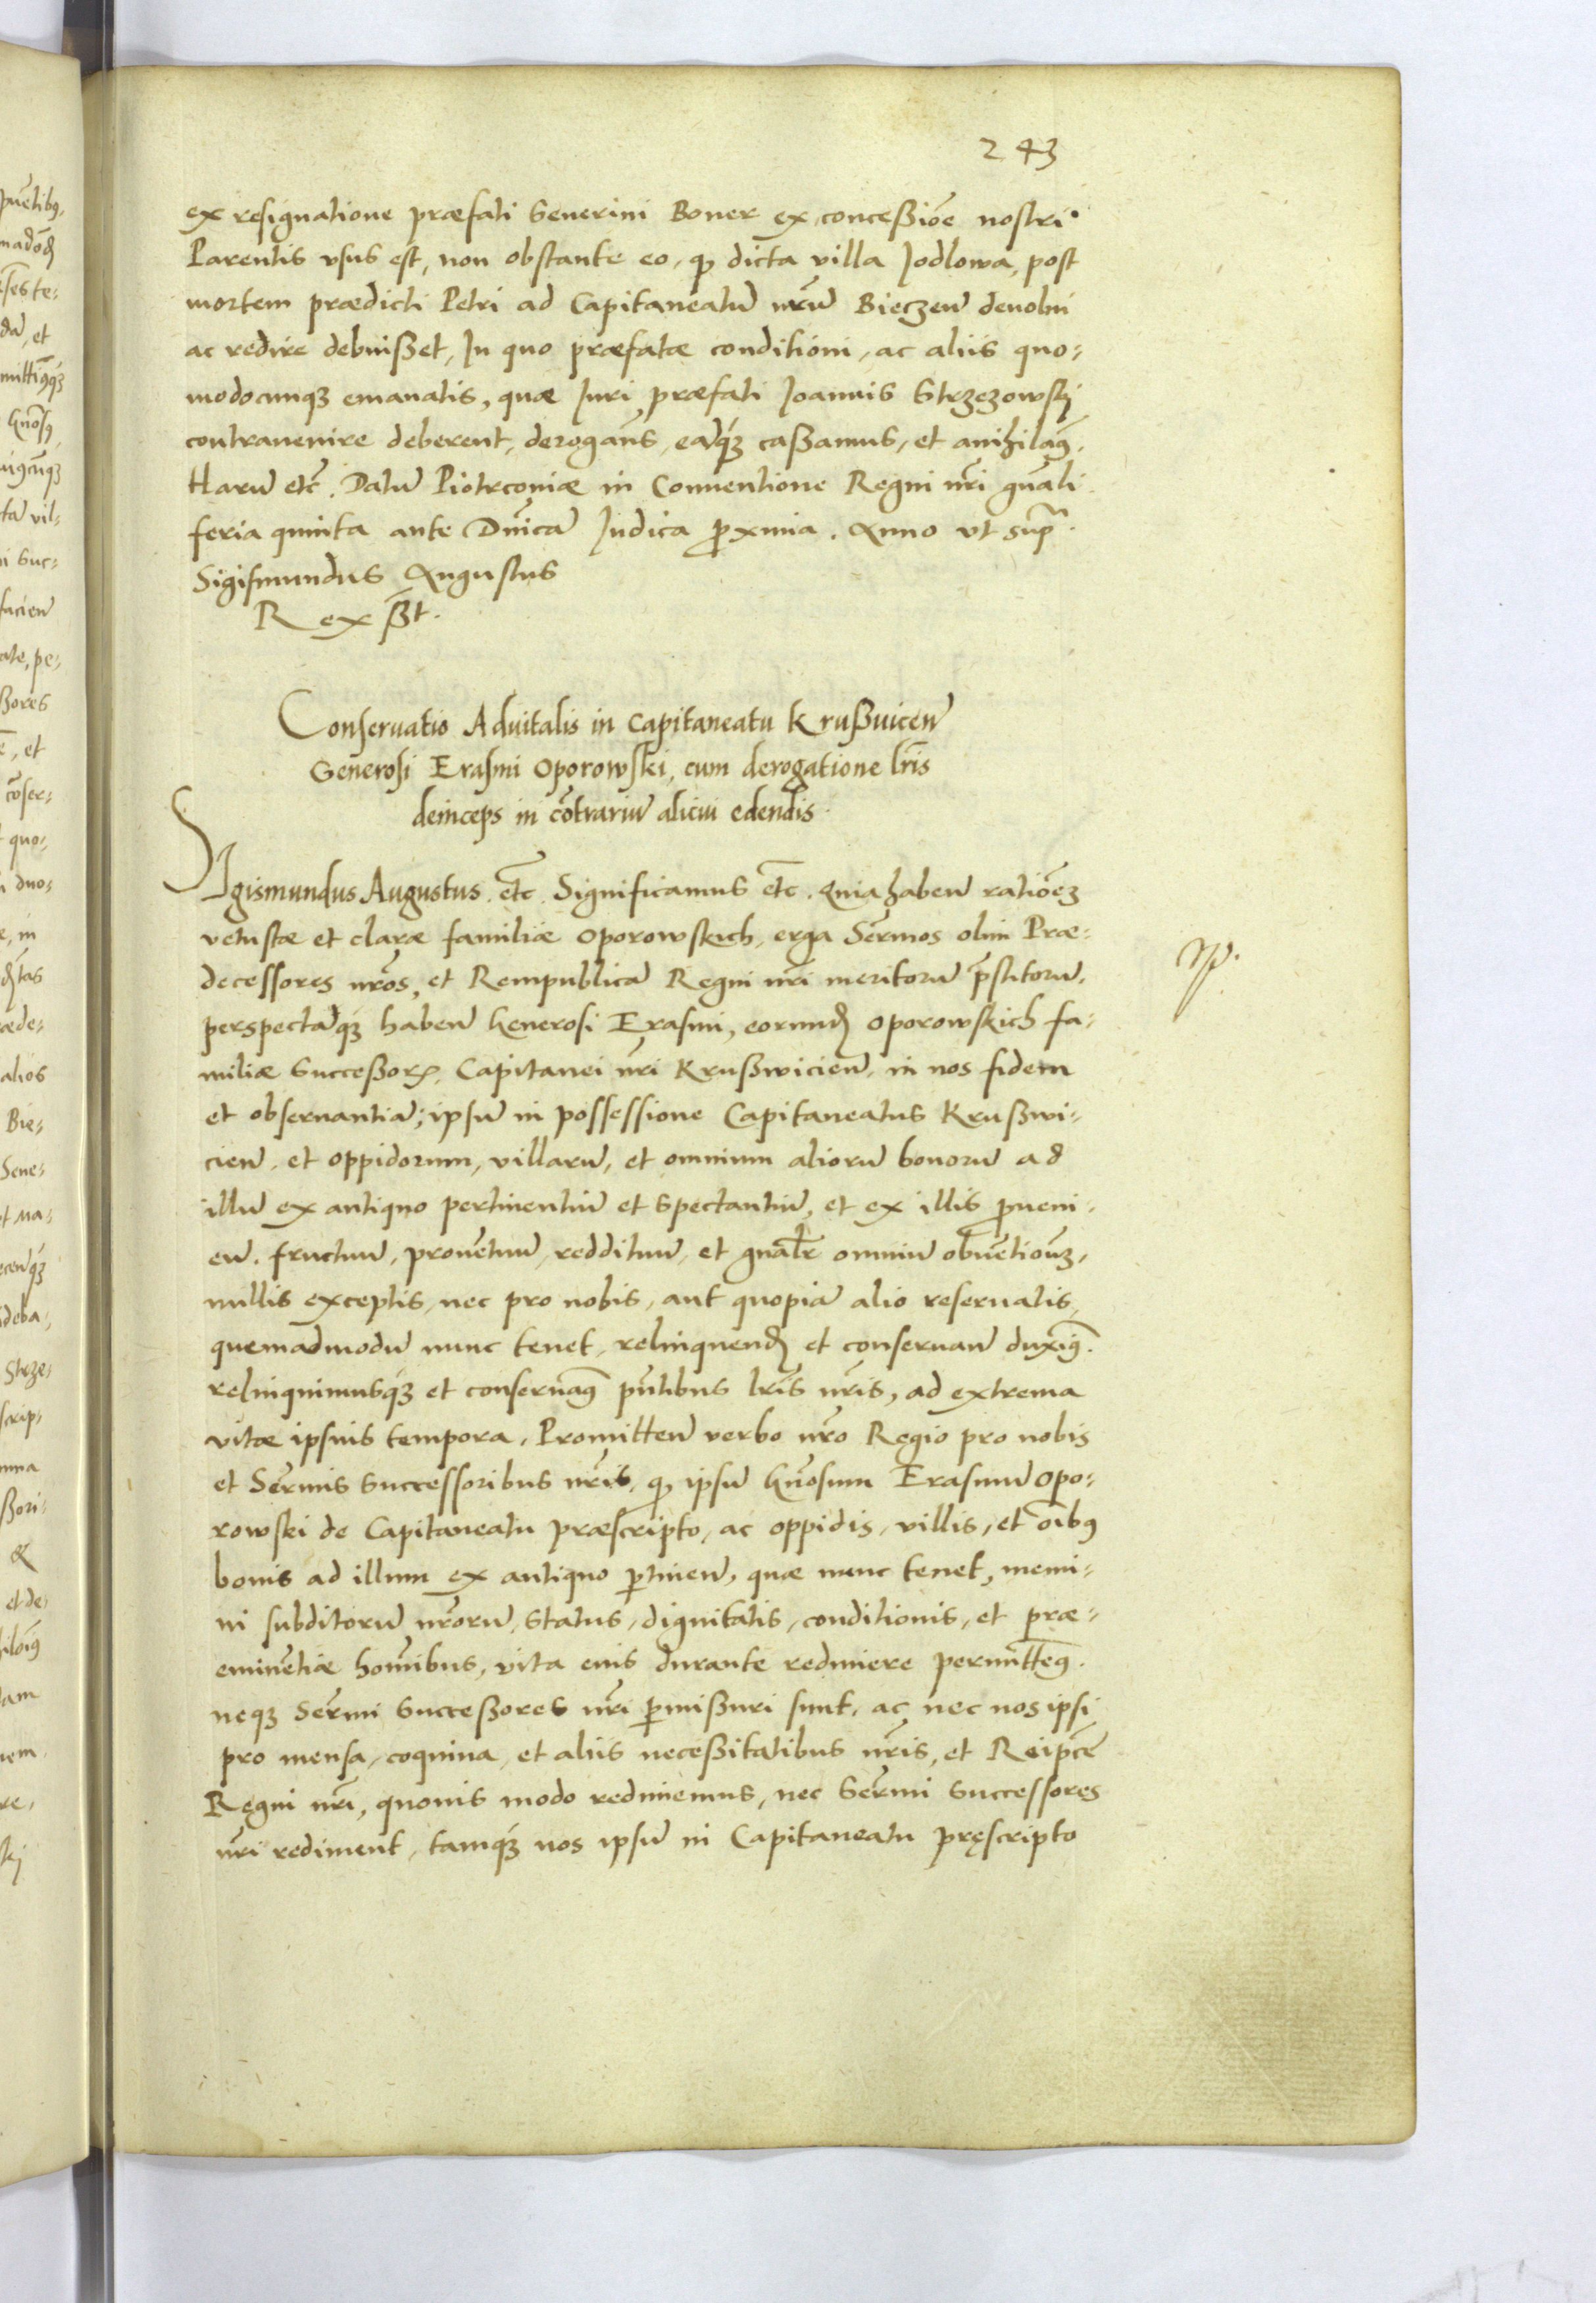 243
ex resignatione præfati Seuerini Boner ex concessiõe nostri
Parentis vsus est, non obstante eo, qꝫ dicta villa Jodlowa, post
mortem prædicti Petri ad Capitaneatũ nr̃m Bieczeñ deuolui
ac redire debuißet, In quo præfatæ conditioni, ac aliis quo-
modocunqꝫ emanatis, quæ Iuri præfati Ioannis Strzezowskj
contrauenire deberent, derogam̃s, eaqꝫ caßamus, et anihilamꝰ.
Harũ etc̃. Datũ Piotrconiæ in Conuentione Regni nr̃i gñali
feria quinta ante Dñicã Iudica ꝓxima. Anno vt supra
Sigismundus Augustus
Rex ßt.
Conseruatio Aduitalis in Capitaneatu Krußuiceñ
Generosi Erasmi Oporowski, cum derogatione lr̃is
deinceps in cõtrariũ alicui edendis.
Sigismundus Augustus etc̃. Significamus etc̃. Quia habeñ ratiõeꝫ
vetustæ et claræ familiæ Oporowskich, erga Serm̃os olim Præ-
decessores nr̃os, et Rempublicã Regni nr̃i meritorũ p̃stitorũ,
perspectãqꝫ habeñ Generosi Erasmi, eorund̃ Oporowskich fa-
miliæ Successoꝝ, Capitanei nr̃i Krußwicieñ, in nos fidem
et obseruantiã; ipsũ in possessione Capitaneatus Krußwi-
cieñ, et oppidorum, villarũ, et omnium aliorũ bonorũ ad
illũ ex antiquo pertinentiũ et spectantiũ, et ex illis ꝓueni-
eñ. fructuũ, prouentuũ, redditũũ, et gñalr̃ omniũ obuẽtionũꝫ,
nullis exceptis, nec pro nobis, aut quopiã alio reseruatis,
quemadmodũ nunc tenet, relinquend̃ et conseruañ duximꝰ.
relinquimusqꝫ et conseruamꝰ pñtibus lr̃is nr̃is, ad extrema
vitæ ipsius tempora. Promitteñ verbo nr̃o Regio pro nobis
et Serm̃is Successoribus nr̃is, qꝫ ipsũ Gñosum Erasmũ Opo-
rowski de Capitaneatu præscripto, ac oppidis, villis, et oĩbꝰ
bonis ad illum ex antiquo ꝑtineñ, quæ nunc tenet, nemi-
ni subditorũ nr̃orũ, status, dignitatis, conditionis, et præ-
eminẽtiæ homĩbus, vita eius durante redimere permittemꝰ.
neqꝫ Serm̃i Successores nr̃i ꝑmißuri sunt, ac nec nos ipsi
pro mensa, coquina, et aliis neceßitatibus nr̃is, et Reipcẽ
Regni nr̃i, quouis modo redimemus, nec Serm̃i Successores
nr̃i rediment, tamqꝫ nos ipsũ in Capitaneatu pręscripto